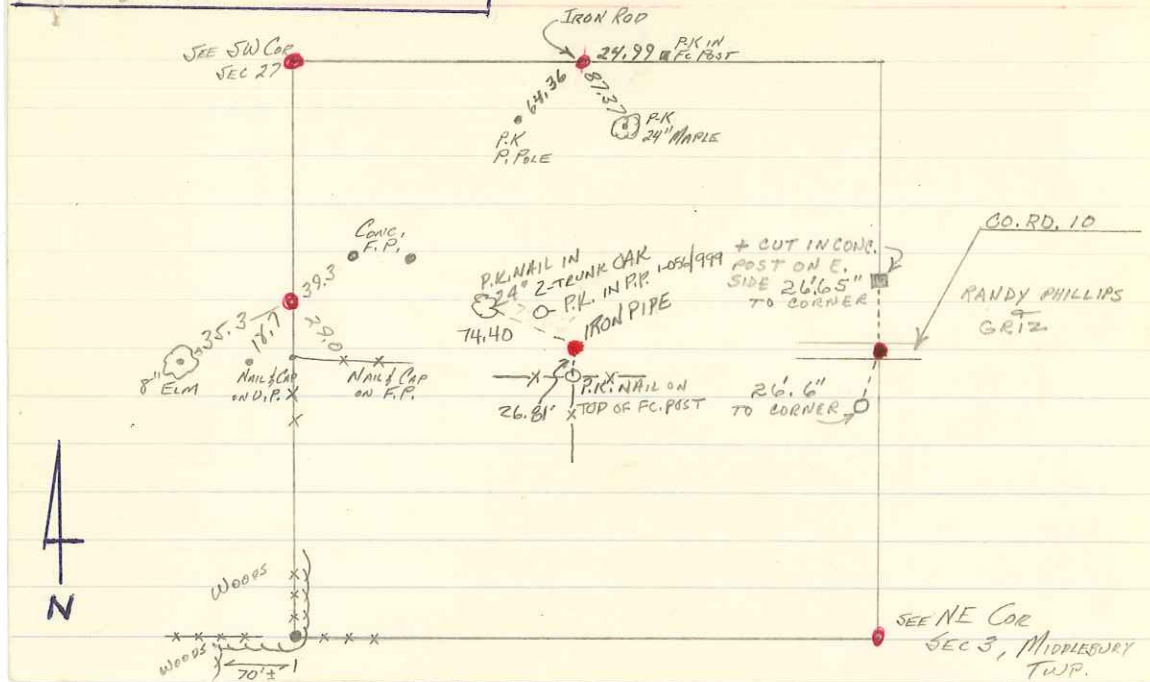 IRON ROD
SEE SW COR
SEC 27
24.99
P.K IN
FC POST
64.36
87.37
P.K
P. POLE
P.K
24" MAPLE
CONC.
F.P.
39.3
35.3
18.7
29.0
8" ELM
NAIL & CAP
ON U.P.
NAIL & CAP
ON F.P.
P.K. NAIL IN
24" 2-TRUNK OAK
P.K. IN P.P.
74.40
IRON PIPE
26.81'
P.K. NAIL ON
TOP OF FC. POST
+ CUT IN CONC.
POST ON E.
SIDE 26'.65"
TO CORNER
CO. RD. 10
RANDY PHILLIPS
&
GRIZ
26'.6"
TO CORNER
N
WOODS
WOODS
70'±
SEE NE COR
SEC 3, MIDDLEBURY
TWP.